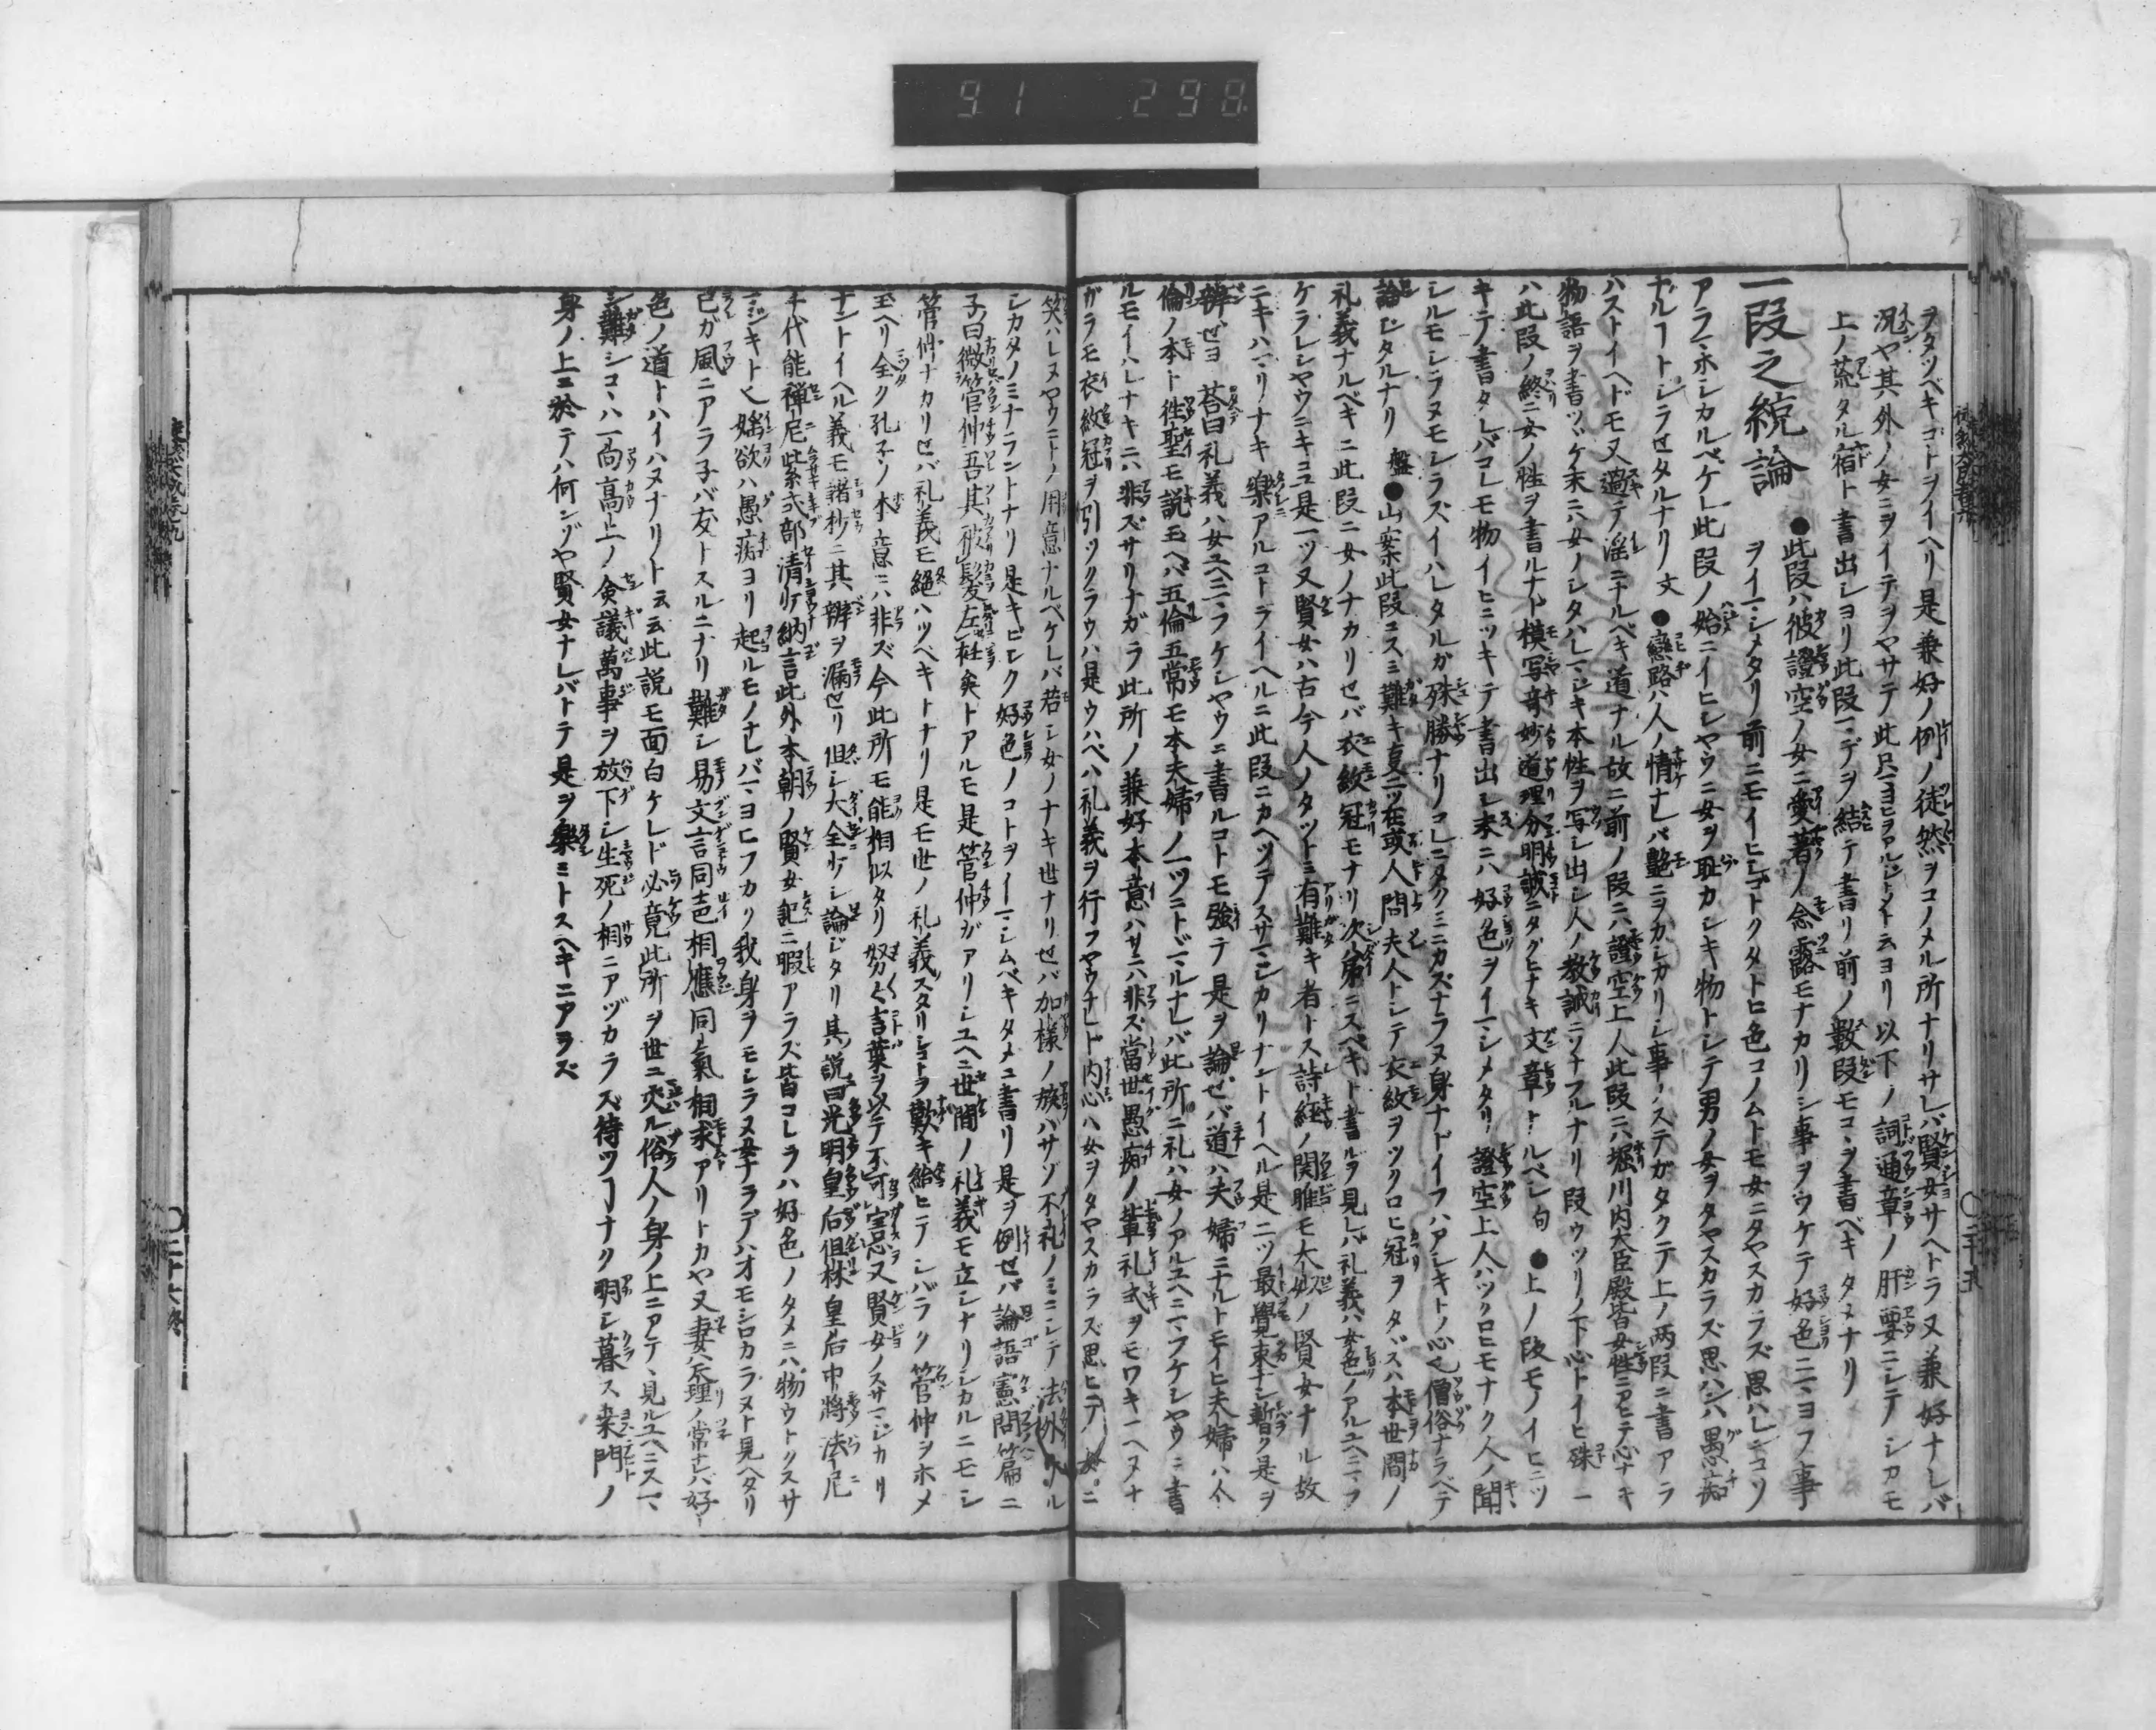 91 298
ヲタツベキコトヲイヘリ是兼好ノ例ノ徒然ヲコノメル所ナリサレバ賢女サヘトラヌ兼好ナレバ
況ヤ其外ノ女ニヲイテヲヤサテ此尺ヨヒヲアルジトメト云ヨリ以下ノ詞通章ノ肝要ニシテシカモ
上ノ荒タル宿ト書出シヨリ此段マデヲ結テ書リ前ノ數段モコヽヲ書ベキタメナリ
一段之統論
●此段ハ彼證空ノ女ニ愛著ノ念露モナカリシ事ヲウケテ好色ニマヨフ事
ヲイマシメタリ前ニモイヒシゴトクタトヒ色コノムトモ女ニタヤスカラズ思ハレンコソ
アラマホシカルベケレ此段ノ始ニイヒシヤウニ女ヲ耻カシキ物トシテ男ノ女ヲタヤスカラズ思ハンハ愚痴
ナルヿトシラセタルナリ文 ●戀路ハ人ノ情ナレバ艶ニヲカシカリシ事ノステガタクテ上ノ両段ニ書アラ
ハストイヘドモ又過テ淫ニナルベキ道ナル故ニ前ノ段ニハ證空上人此段ニハ堀川内大臣殿皆女性ニアヒテ心ナキ
物語ヲ書ツヾケ末ニハ女ノシタハシマジキ本性ヲ写シ出シ人ノ教誡ニソナフルナリ段ウツリノ下心トイヒ殊ニ
ハ此段ノ終ニ女ノ性ヲ書ルナド模写奇妙道理分明誠ニタグヒナキ文章トイルベシ句 ●上ノ段モノイヒニツ
キテノ書タレバコレモ物イヒニツキテ書出シ末ニハ好色ヲイマシメタリ證空上人ハツクロヒモナク人ノ聞
シルモシラヌモシラズイハレタルガ殊勝ナリコレニタクミニカズナラヌ身ナドイフハアシキトノ心也僧俗ナラベテ
論ジタルナリ 盤●山案此段コスミ難キ夏二ツ在或人問夫人トシテ衣紋ヲツクロヒ冠ヲタヾスハ本世間ノ
礼義ナルベキニ此段ニ女ノナカリセバ衣紋冠モナリ次第ニスベキト書ルヲ見レバ礼義ハ女色ノアルユヘニマフ
ケラレシヤウニキコユ是一ツ又賢女ハ古今人ノタツトミ有難キ者トス詩經ノ関雎モ太姒ノ賢女ナル故
ニキハマリナキ樂アルコトヲイヘルニ此段ニカヘツテノスサマジカリナントイヘル是二ツ最覺束ナシ暫ク是ヲ
辨ゼヨ 荅曰礼義ハ女ユヘニマフケシヤウニ書ルコトモ強テ是ヲ論ゼバ道ハ夫婦ニナルトモイヒ夫婦ハ人
倫ノ本ト徃聖モ説玉ヘバ五倫五常モ本夫婦ノ一ツニトドマルナレバ此所ニ礼ハ女ノアルユヘニマフケシヤウニ書
ルモイハレナキニハ非ズサリナガラ此所ノ兼好本意ハサニハ非ズ當世愚痴ノ輩礼式ヲモワキマヘヌナ
ガラモ衣紋冠ヲ引ツクラウハ是ウハベハ礼義ヲ行フヤウナレド内心ハ女ヲタヤスカラズ思ヒテノ女ニ
笑ハレヌヤウニトノ用意ナルベケレバ若シ女ノナキ世ナリセバ加様ノ族ハサゾ不礼ノミニシテ法外ナル
シカタノミナラントナリ是キビシク好色ノコトヲイマシムベキタメニ書リ是ヲ例セバ論語憲問篇ニ
子曰微管仲吾其被髪左衽矣トアルモ是管仲ガアリシユヘニ世間ノ礼義モ立シナリシカルニモシ
管仲ナカリセバ礼義モ絶ハツベキトナリ是モ世ノ礼義スタリシコトヲ歎キ給ヒテシバラク管仲ヲホメ
玉ヘリ全ク孔子ノ本意ニハ非ズ今此所モ能相似タリ努々言葉ヲ以テ不可害意又賢女ノスサマジカリ
ナントイヘル義モ諸抄ニ其辨ヲ漏セリ但シ大全少シ論ジタリ其説曰光明皇后但林皇后中將法尼
千代能禅尼紫式部清少納言此外本朝ノ賢女記ニ暇アラズ皆コレラハ好色ノタメニハ物ウトクスサ
マジキト也婬欲ハ愚痴ヨリ起ルモノナレバマヨヒフカク我身ヲモシラヌ女ナラデハオモシロカラヌト見ヘタリ
己ガ風ニアラ子バ友トスルニナリ難シ易文言同声相應同氣相求アリトカヤ又妻ハ天理ノ常ナレバ好
色ノ道トハイハヌナリト云云此説モ面白ケレド必竟此所ヲ世ニ交ル俗人ノ身ノ上ニアテヽ見ルユヘニスマ
シ難シコヽハ一向高上ノ僉議萬事ヲ放下シ生死ノ相ニアヅカラズ待ツヿナク明シ暮ス桑門ノ
身ノ上ニ於テハ何ンゾヤ賢女ナレバトテ是ヲ樂ミトスベキニアラズ
○二十五
○二十六終